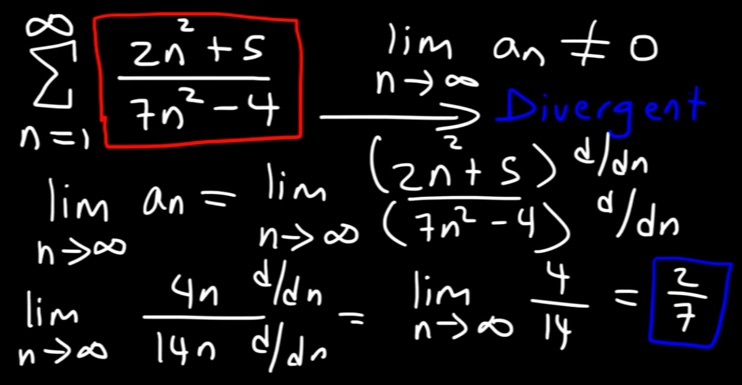 ∞ ∑ n=1 (2n² + 5)/(7n² - 4) → lim n→∞ an ≠ 0 Divergent
lim n→∞ an = lim n→∞ (2n² + 5) d/dn / (7n² - 4) d/dn
lim n→∞ 4n d/dn / 14n d/dn = lim n→∞ 4/14 = 2/7